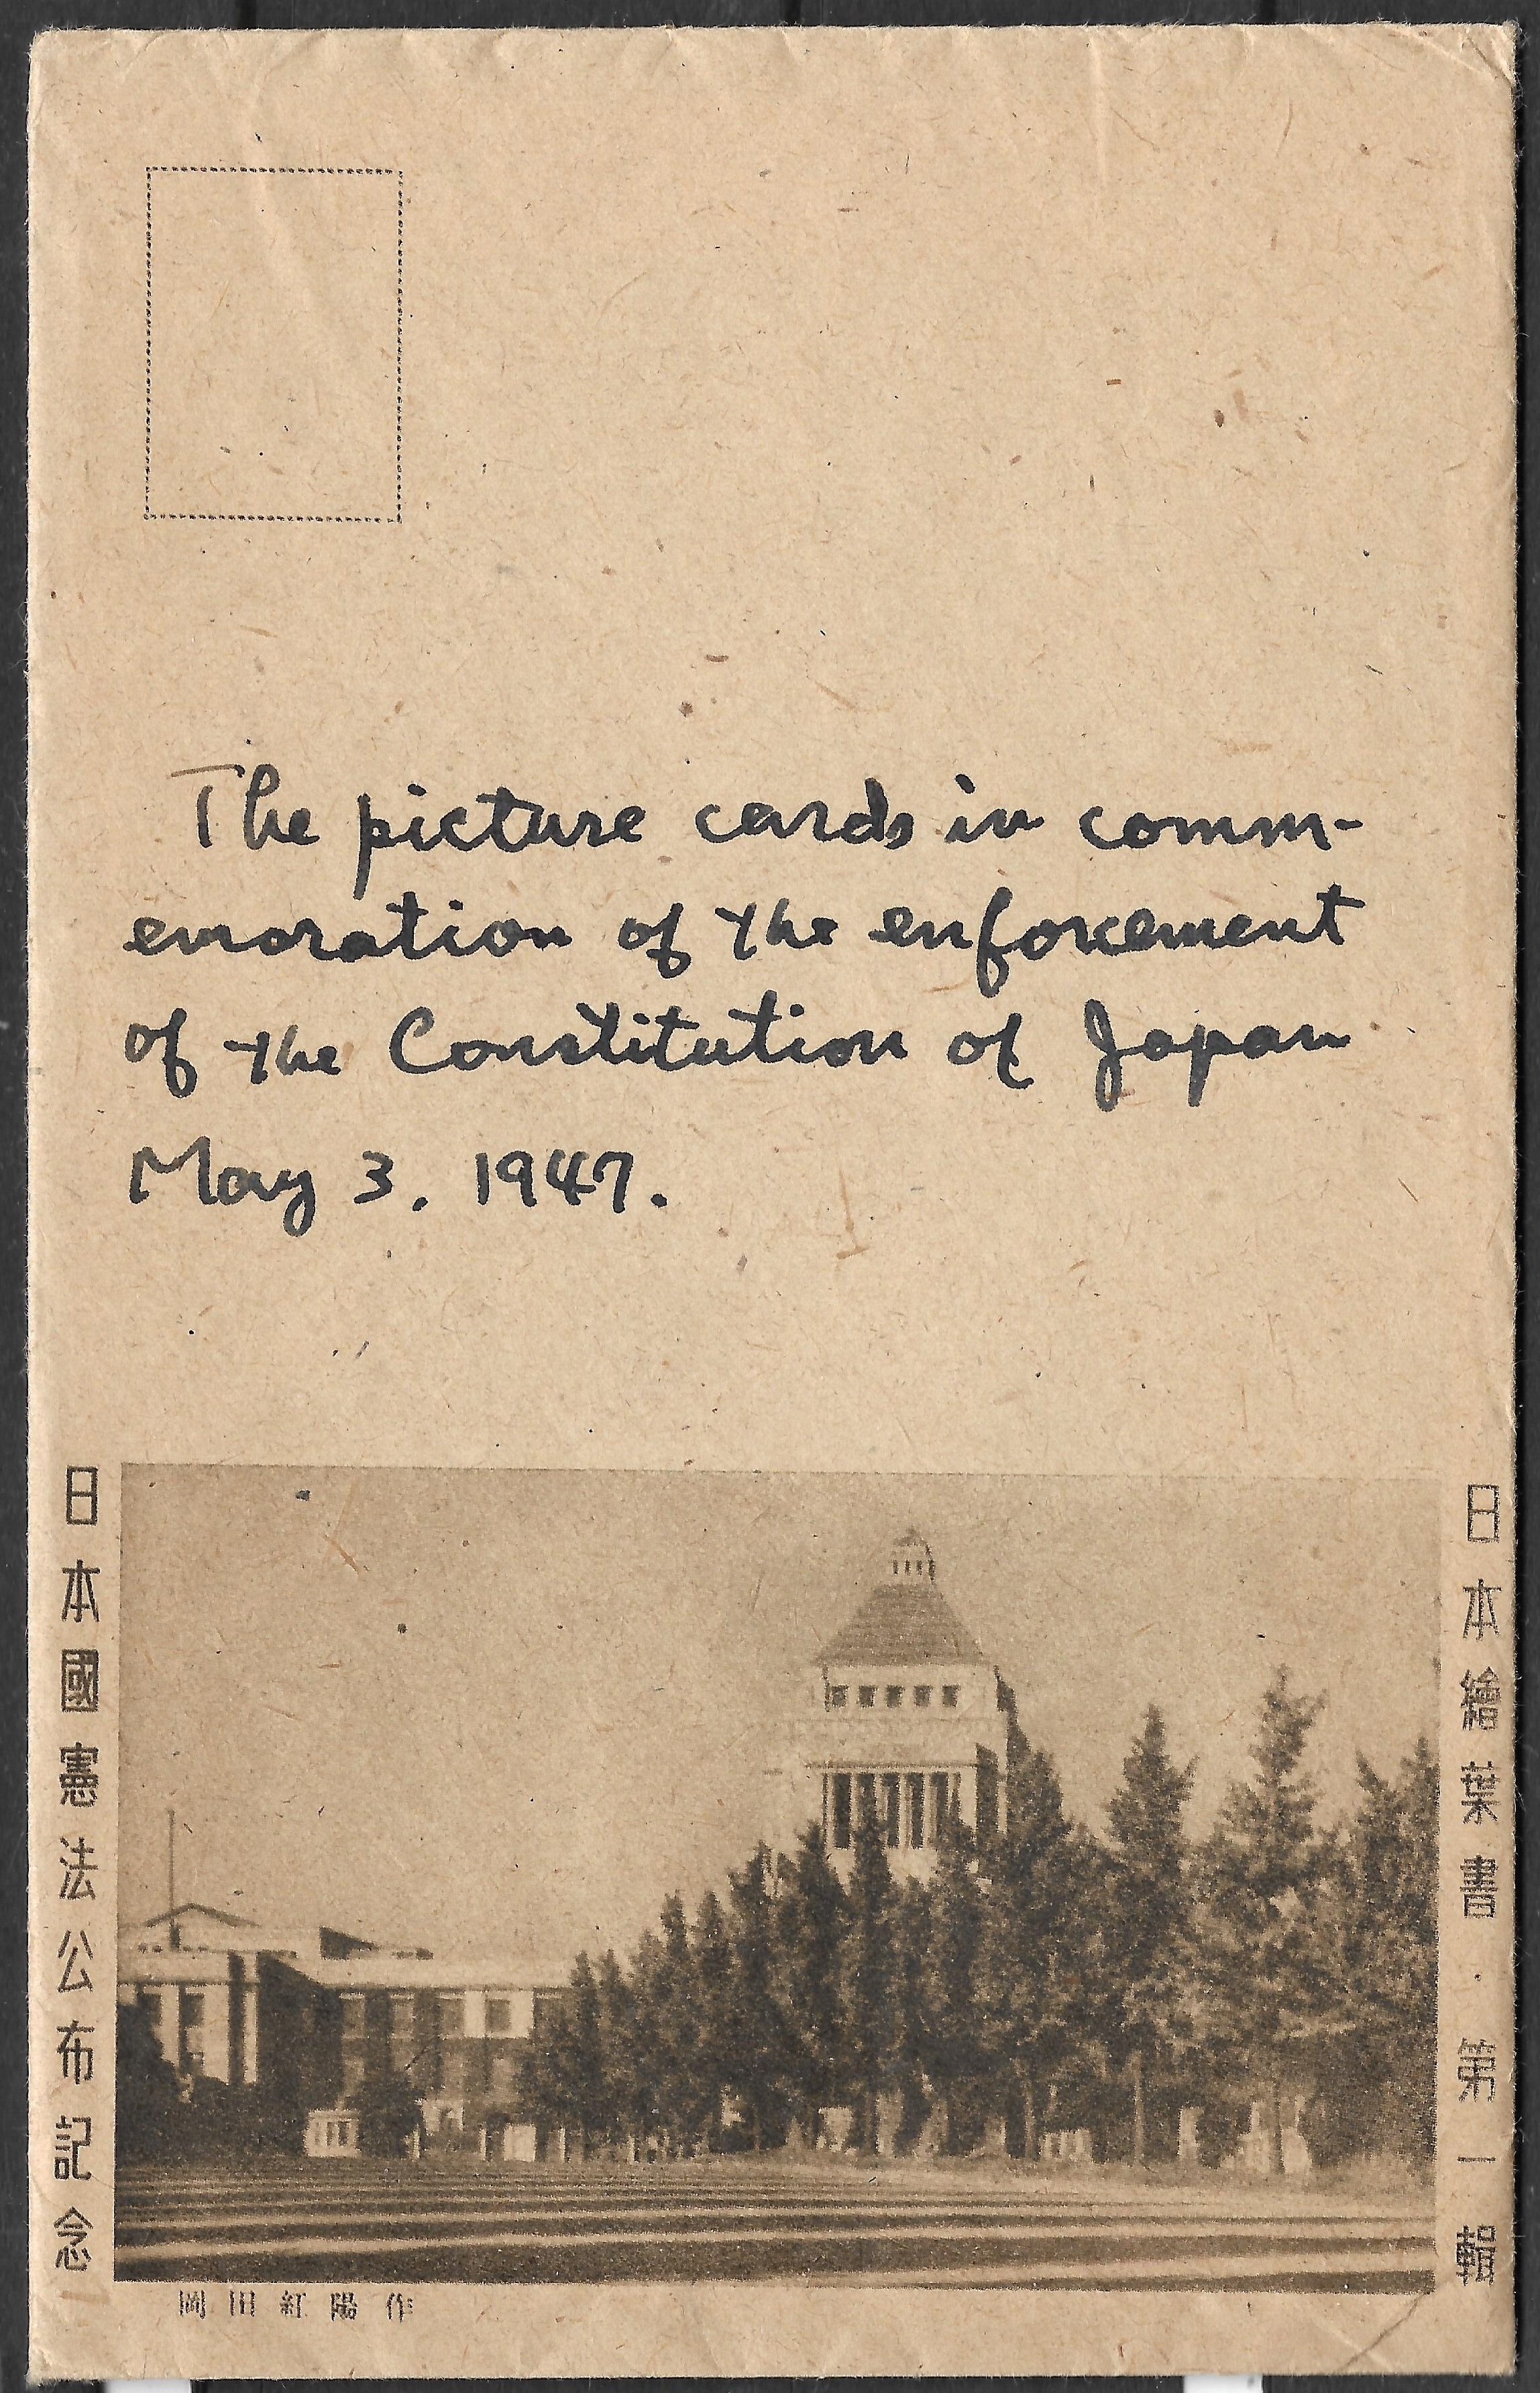 The picture cards in comm-
emoration of the enforcement
of the Constitution of Japan
May 3. 1947.
日本繪葉書・第一輯
日本國憲法公布記念
岡田紅陽作